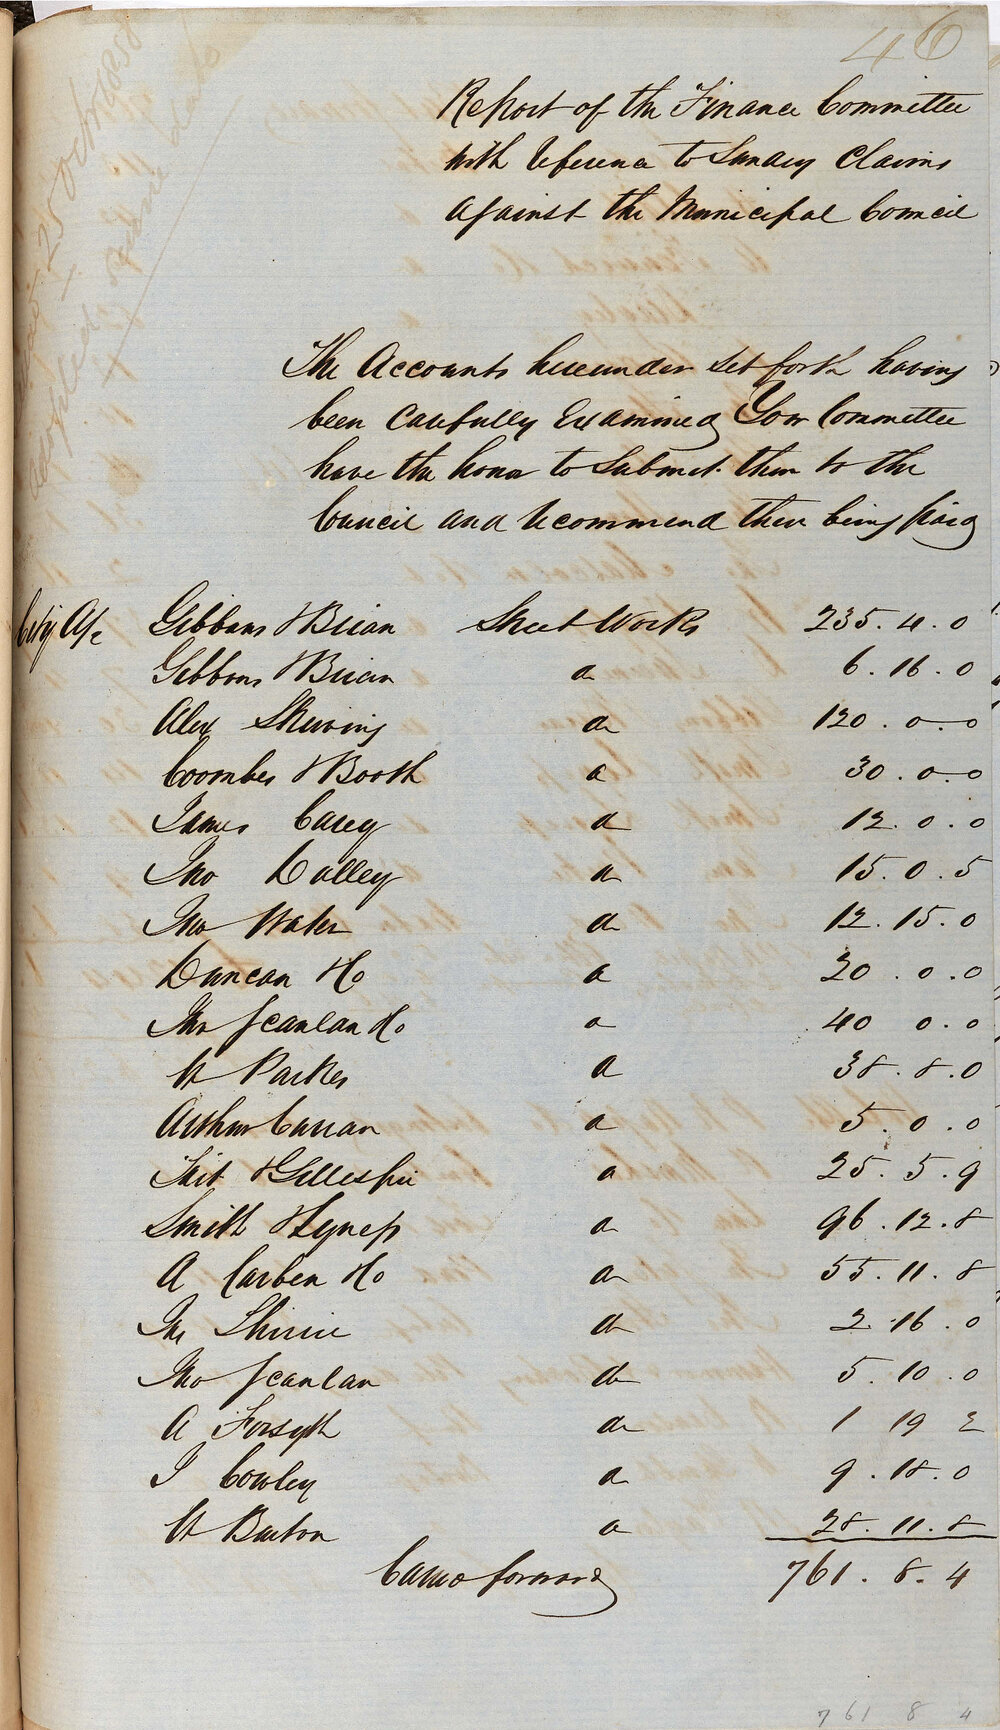 46
25 Octr 1858
Report of the Finance Committee
with reference to Sundry Claims
against the Municipal Council
The Accounts hereunder set forth having
been Carefully Examined Your Committee
have the honor to Submit them to the
Council and recommend their being paid
City A/c Gibbons & Brian Street Works 235.4.0
Gibbons & Brian do 6.16.0
Alex Skirving do 120.0.0
Coombes & Booth do 30.0.0
James Carey do 12.0.0
Jno Dalley do 15.0.5
Jno Water do 12.15.0
Duncan & Co do 20.0.0
Jno Scanlan & Co do 40 0.0
W Parkes do 38.8.0
Arthur Curran do 5.0.0
Tait & Gillespie do 25.5.9
Smith & Hyness do 96.12.8
A Corben & Co do 55.11.8
Jno Shirrie do 2.16.0
Jno Scanlan do 5.10.0
A Forsyth do 1 19 2
J Cowley do 9.18.0
W Barton do 28.11.8
Carried forward 761.8.4
761 8 4